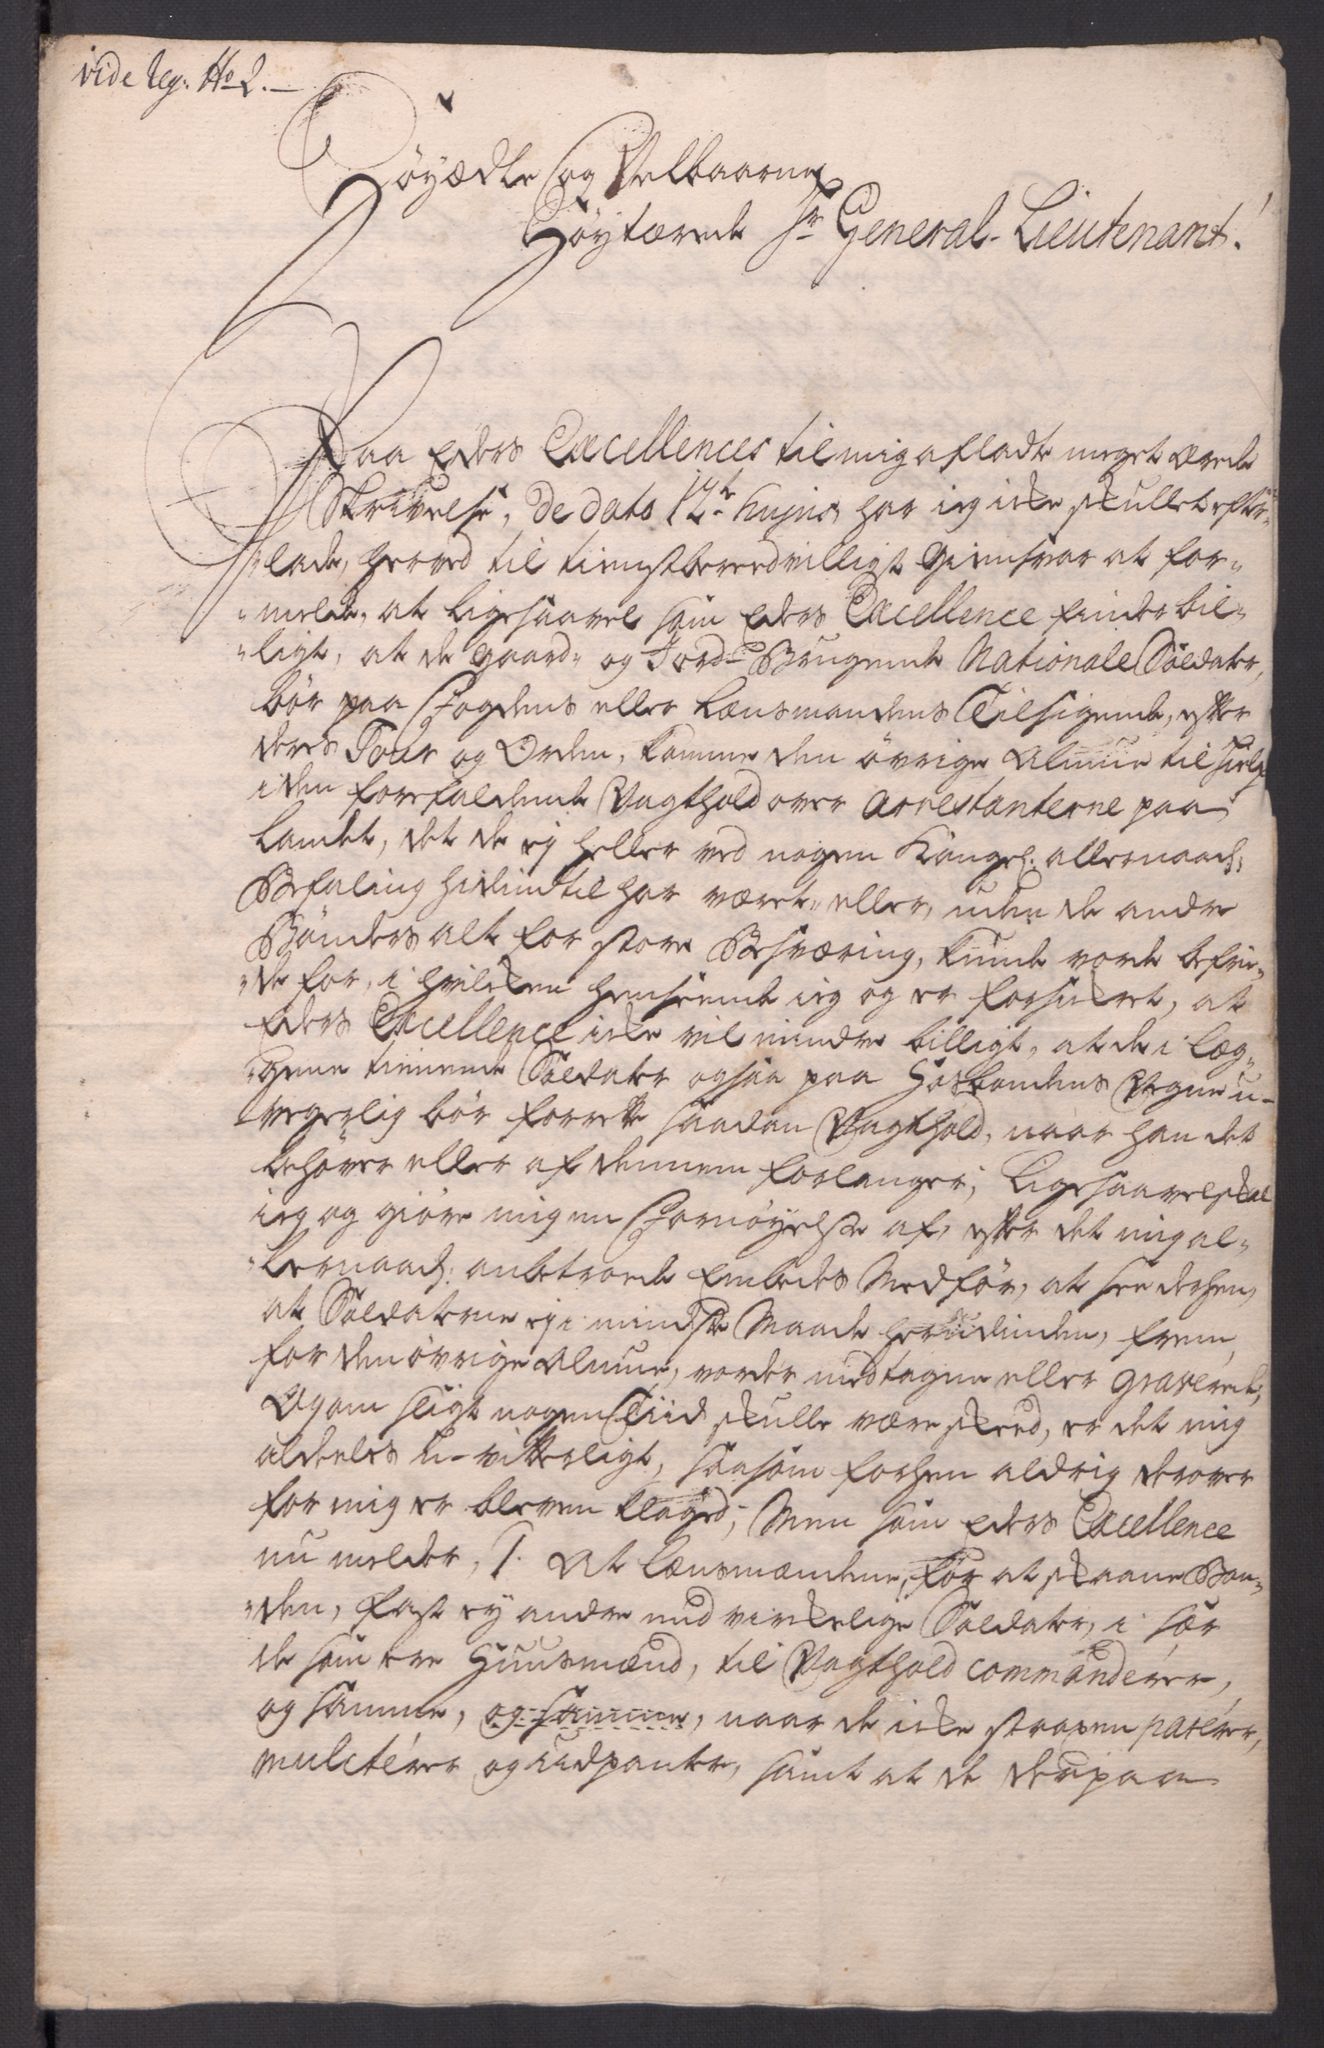 vide Reg: No 2.
Høyædle og Velbaarne
Høytærede Hr General-Lieutenant!
Paa Eders Excellences til mig afladte meget ærede
Skrivelse, de dato 12te hujus, har ieg icke skullet efter-
-lade, herved til tienstbereedvilligst Giensvar at for-
-melde, at ligesaavel som Eders Excellence finder bil-
-ligt, at de gaard- og Jord-Brugende Nationale Soldater,
bør paa Fogdens eller Lænsmandens Tilsigende, efter
deres Tour og Orden, komme den øvrige Almue til hielp
i den forefaldende Vagthold over Arrestanterne paa
Landet, det de ej heller ved nogen Kongel: allernaad:
Befaling hidindtil har været, eller, uden de andre
Bønders alt for store Besværing, kunde vorde befrie-
-de for, i hvilcken henseende ieg og er forsickret, at
Eders Excellence icke vil mindre billigt, at de i Læg-
-gene tienende Soldater ogsaa paa Hosbondens Vegne u-
-vegerlig bør forrette saadan Vagthold, naar han det
behøver eller af dennem forlanger; Ligesaavel skal
ieg og giøre mig en Fornøyelse af, efter det mig al-
-lernaad: anbetroede Embedes Medfør, at see derhen,
at Soldaterne ej i mindste Maade herudinden, frem
for den øvrige Almue, vorder medtagne eller graverede,
Og om sligt nogen Tiid skulle være skeed, er det mig
aldeeles u-vitterligt, saasom forhen aldrig derover
for mig er bleven klaged; Men som Eders Excellence
nu melder, 1. At Lænsmændene, for at skaane Bon-
-den, fast ey andre end virckelige Soldater, i sær
de som ere Huusmænd, til Vagthold commanderer,
og samme, og samme, naar de icke strax parerer,
mulcterer og udpanter, samt at de derpaa